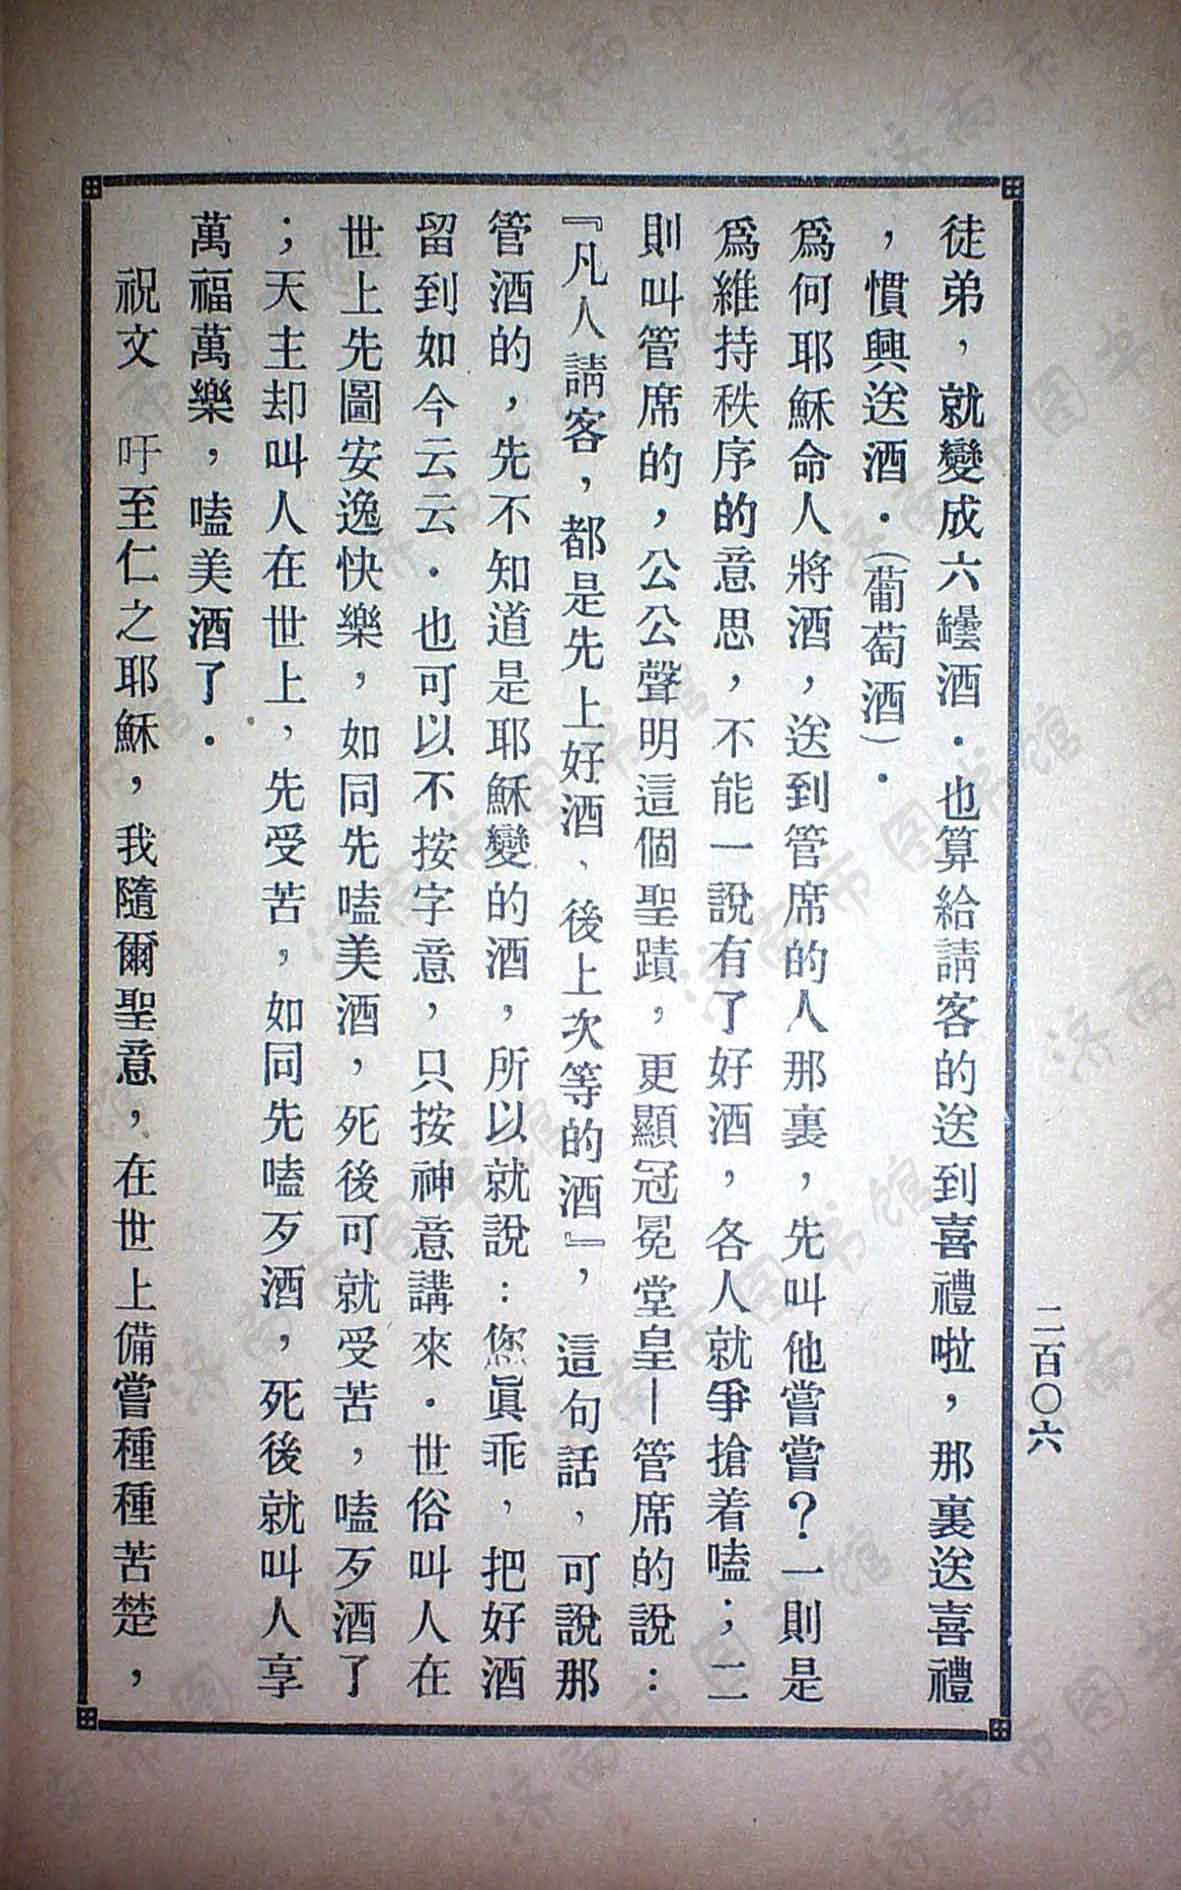 徒弟，就變成六罎酒．也算給請客的送到喜禮啦，那裏送喜禮
，慣興送酒．(葡萄酒)．
爲何耶穌命人將酒，送到管席的人那裏，先叫他嘗嘗？一則是
爲維持秩序的意思，不能一說有了好酒，各人就爭搶着嗑；二
則叫管席的，公公聲明這個聖蹟，更顯冠冕堂皇—管席的說：
『凡人請客，都是先上好酒、後上次等的酒』，這句話，可說那
管酒的，先不知道是耶穌變的酒，所以就說：您眞乖，把好酒
留到如今云云．也可以不按字意，只按神意講來．世俗叫人在
世上先圖安逸快樂，如同先嗑美酒，死後可就受苦，嗑歹酒了
；天主却叫人在世上，先受苦，如同先嗑歹酒，死後就叫人享
萬福萬樂，嗑美酒了．
祝文　吁至仁之耶穌，我隨爾聖意，在世上備嘗種種苦楚，
二百〇六
济南市图书馆